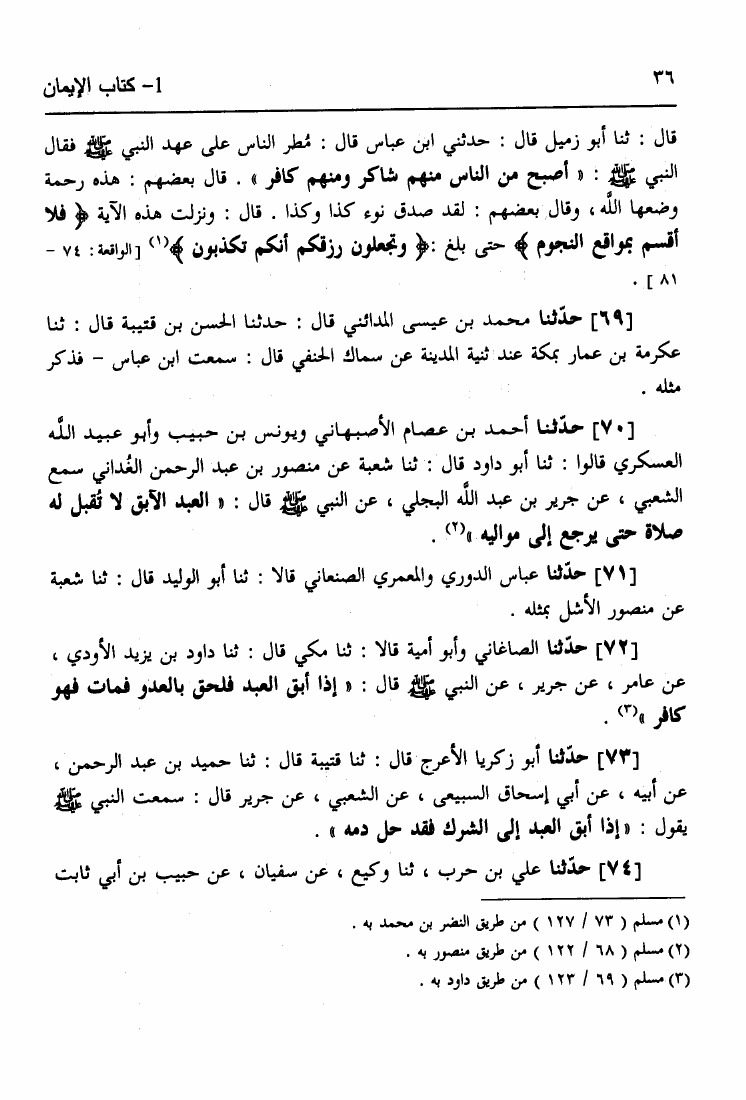 ٣٦
1- كتاب الإيمان
قال : ثنا أبو زميل قال : حدثني ابن عباس قال : مُطر الناس على عهد النبي ﷺ فقال
النبي ﷺ : « أصبح من الناس منهم شاكر ومنهم كافر » . قال بعضهم : هذه رحمة
وضعها اللَّه، وقال بعضهم : لقد صدق نوء كذا وكذا . قال : ونزلت هذه الآية ﴿ فلا
أقسم بمواقع النجوم ﴾ حتى بلغ :﴿ وتجعلون رزقكم أنكم تكذبون ﴾(١) [الواقعة: ٧٤ –
٨١ ] .
[٦٩] حدّثنا محمد بن عيسى المدائني قال : حدثنا الحسن بن قتيبة قال : ثنا
عكرمة بن عمار بمكة عند ثنية المدينة عن سماك الحنفي قال : سمعت ابن عباس – فذكر
مثله .
[٧٠] حدّثنا أحمد بن عصام الأصبهاني ويونس بن حبيب وأبو عبيد اللَّه
العسكري قالوا : ثنا أبو داود قال : ثنا شعبة عن منصور بن عبد الرحمن الغُداني سمع
الشعبي ، عن جرير بن عبد اللَّه البجلي ، عن النبي ﷺ قال : « العبد الآبق لا تُقبل له
صلاة حتى يرجع إلى مواليه »(٢) .
[٧١] حدّثنا عباس الدوري والمعمري الصنعاني قالا : ثنا أبو الوليد قال : ثنا شعبة
عن منصور الأشل بمثله .
[٧٢] حدّثنا الصاغاني وأبو أمية قالا : ثنا مكي قال : ثنا داود بن يزيد الأودي ،
عن عامر ، عن جرير ، عن النبي ﷺ قال : « إذا أبق العبد فلحق بالعدو فمات فهو
كافر »(٣) .
[٧٣] حدّثنا أبو زكريا الأعرج قال : ثنا قتيبة قال : ثنا حميد بن عبد الرحمن ،
عن أبيه ، عن أبي إسحاق السبيعى ، عن الشعبي ، عن جرير قال : سمعت النبي ﷺ
يقول : «إذا أبق العبد إلى الشرك فقد حل دمه » .
[٧٤] حدّثنا علي بن حرب ، ثنا وكيع ، عن سفيان ، عن حبيب بن أبي ثابت
(١) مسلم ( ٧٣ / ١٢٧ ) من طريق النضر بن محمد به .
(٢) مسلم ( ٦٨ / ١٢٢ ) من طريق منصور به .
(٣) مسلم ( ٦٩ / ١٢٣ ) من طريق داود به .